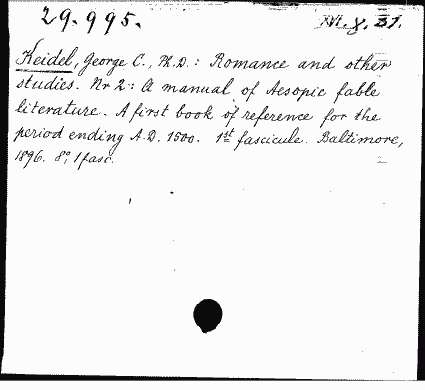 29.995. XVI. 8. 31.
Keidel, George C., Ph. D.: Romance and other
studies. Nr 2: A manual of Aesopic fable
literature. A first book of reference for the
period ending A.D. 1500. 1st fascicule. Baltimore,
1896. 8°, 1 fasc.